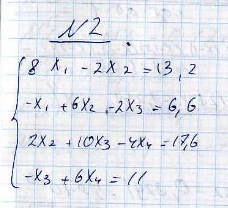 N2
8x₁ - 2x₂ = 13,2
-x₁ + 6x₂ - 2x₃ = 6,6
2x₂ + 10x₃ - 4x₄ = 17,6
-x₃ + 6x₄ = 11